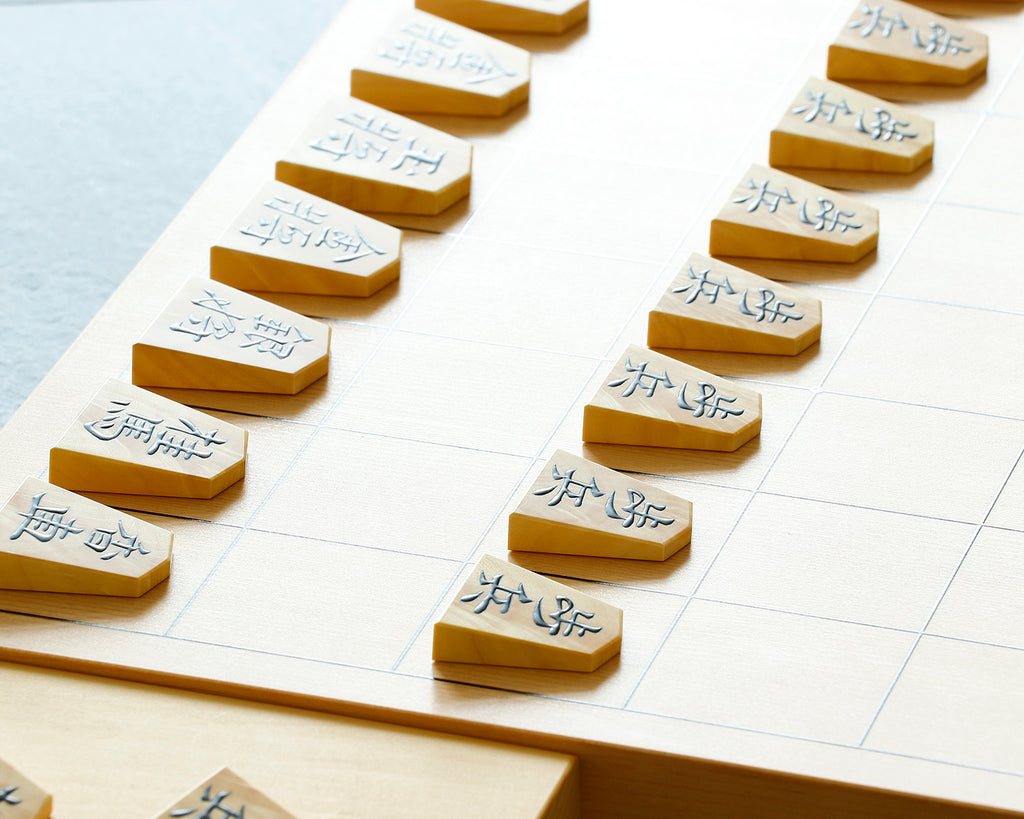 金将
玉将
金将
銀将
桂馬
香車
歩兵
歩兵
歩兵
歩兵
歩兵
歩兵
歩兵